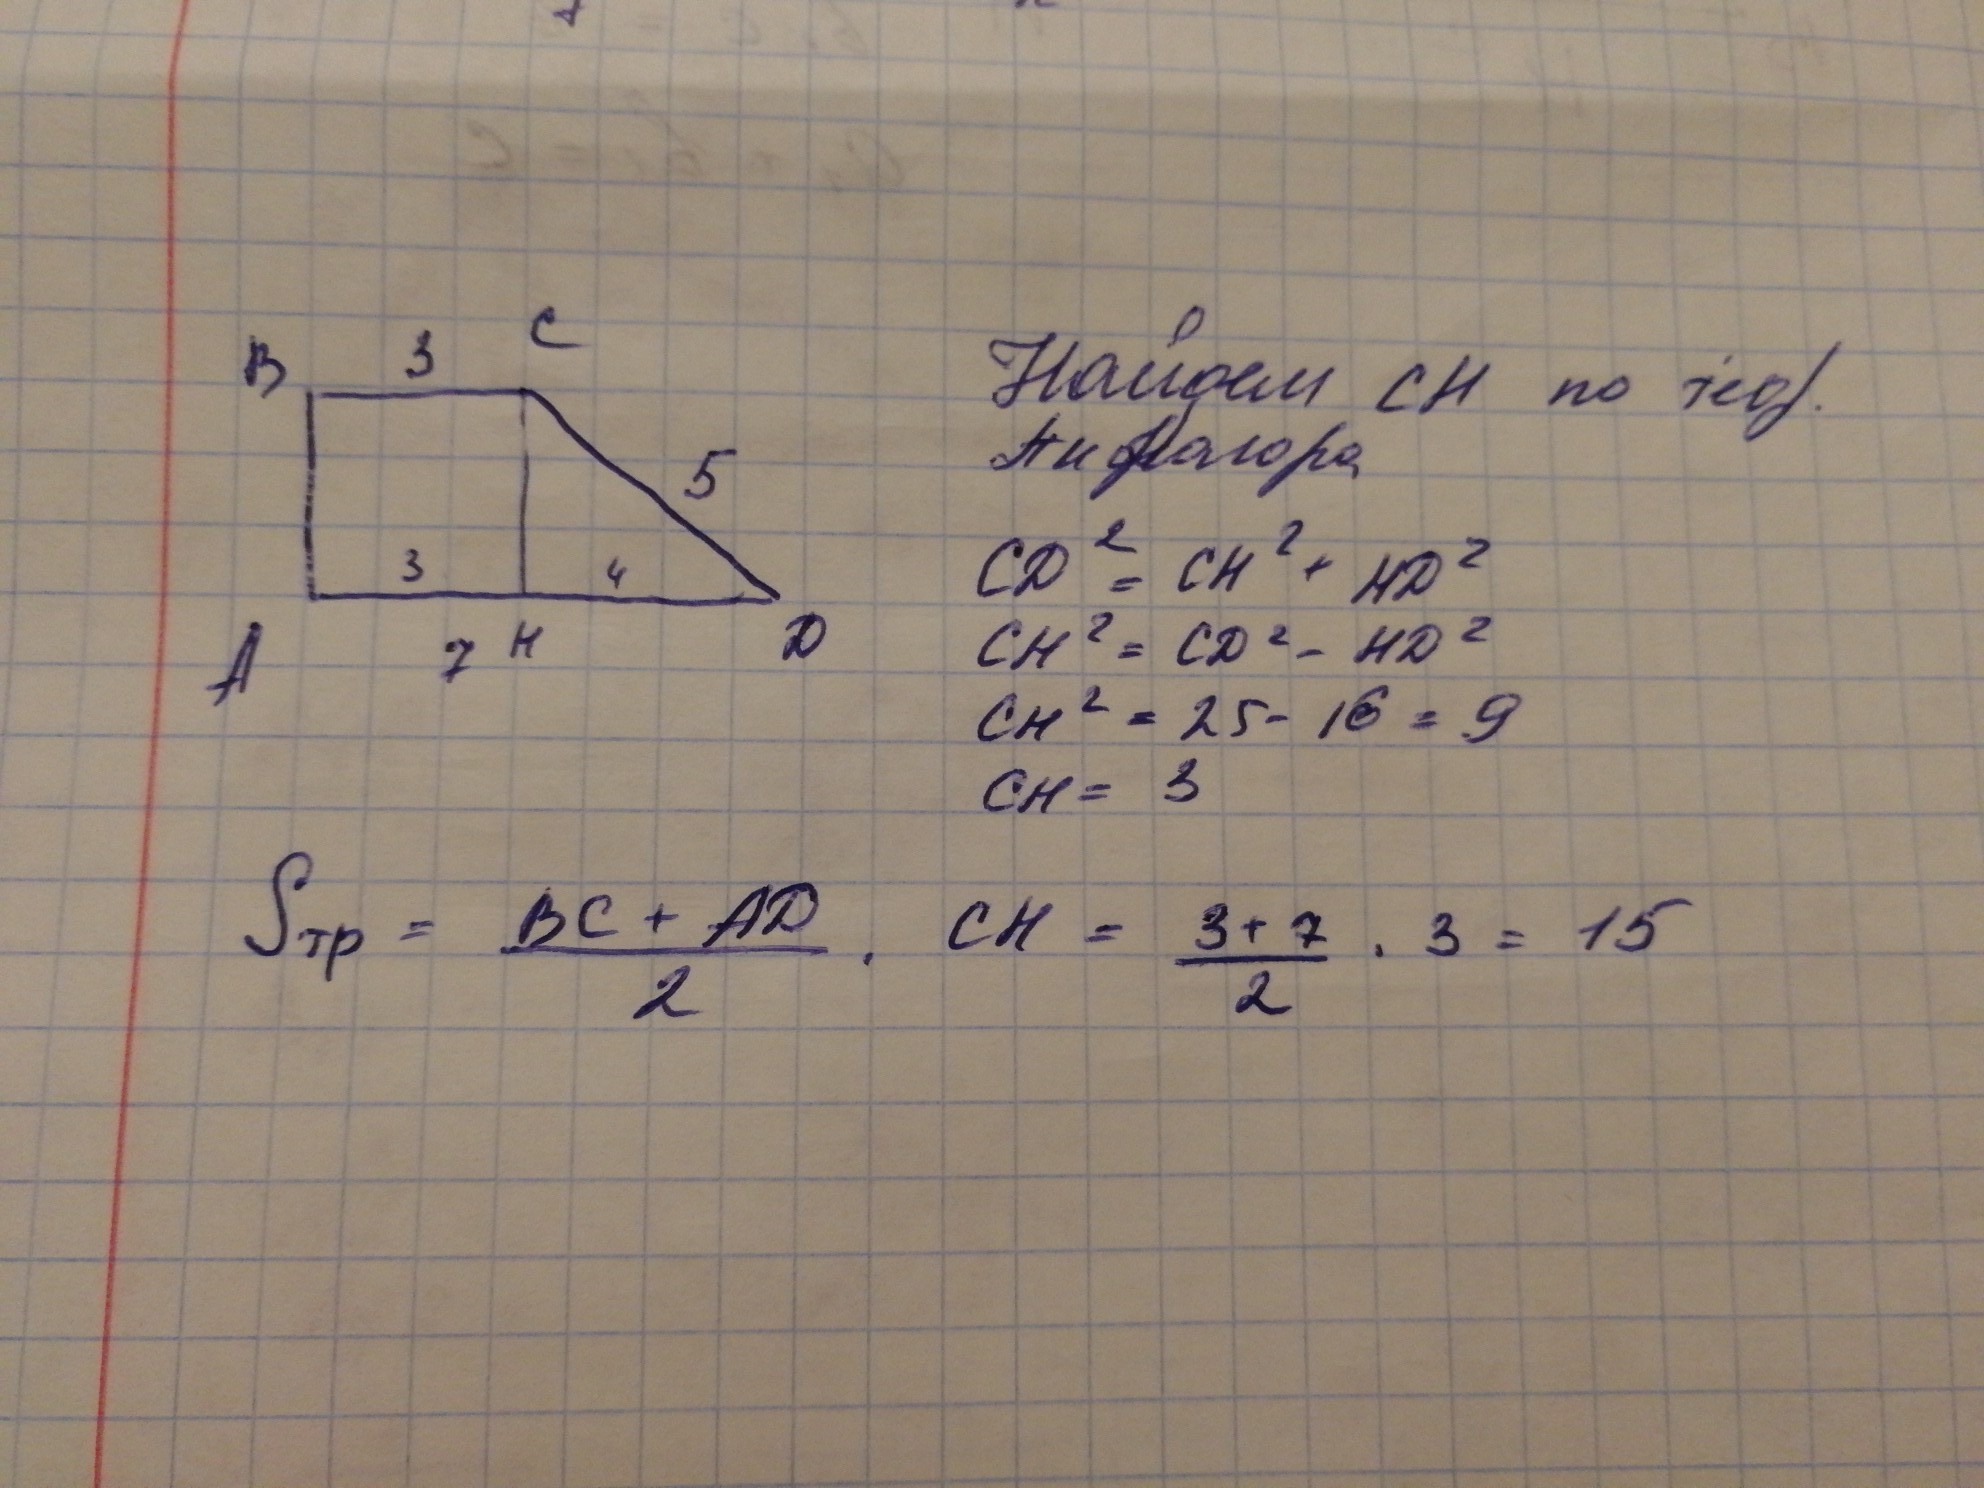 B 3 C
5
3 4
A 7 H D
Найдем CH по теор.
Пифагора
CD² = CH² + HD²
CH² = CD² - HD²
CH² = 25 - 16 = 9
CH = 3
Sтр = (BC + AD)/2 · CH = (3+7)/2 · 3 = 15